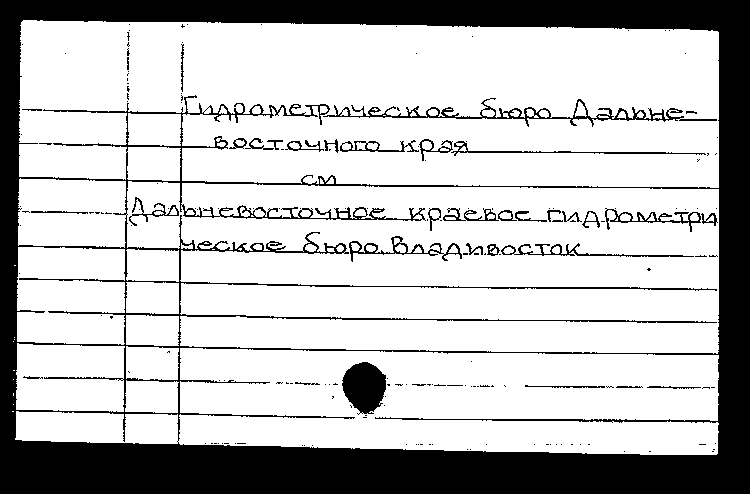 Гидрометрическое бюро Дальне-
восточного края
см
Дальневосточное краевое гидрометри
ческое бюро. Владивосток.